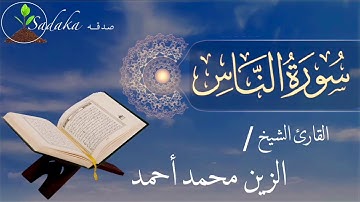 Sadaka صدقه
سُورَةُ النَّاسِ
القارئ الشيخ /
الزين محمد أحمد